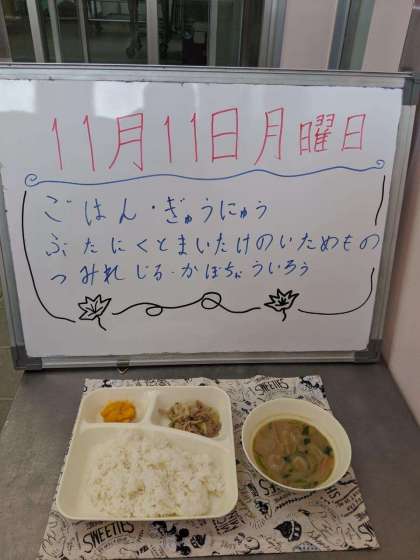 11月11日月曜日
ごはん・ぎゅうにゅう
ぶたにくとまいたけのいためもの
つみれじる・かぼちゃういろう
SWEETIES
SWEETIES
SWEETIES